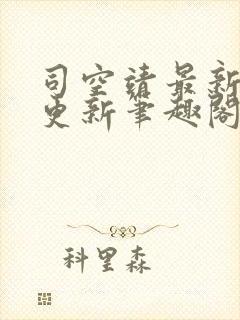 司空靖最新
更新笔趣阁
科里森